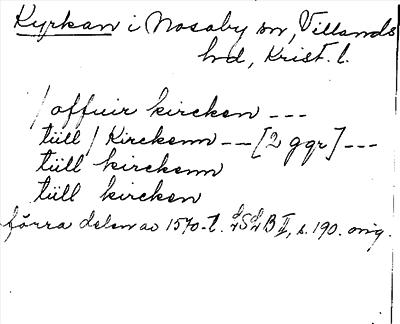 Kyrkan i Nosaby sn, Villands
hd, Krist. l.
/ offuir kircken ---
tüll / Kirckenn -- [2 ggr] ---
tüll kirckenn
tüll kircken
förra delen av 1570-t. B II, s. 190. orig.